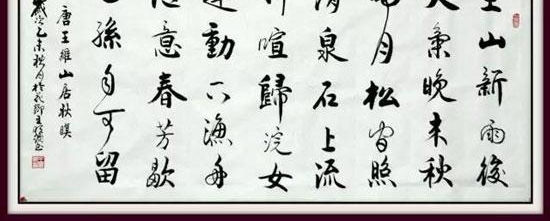 山新雨後
天氣晚来秋
明月松间照
清泉石上流
竹喧歸浣女
蓮動下漁舟
意春芳歇
孫自可留
唐王維山居秋暝
歲次乙未秋月於